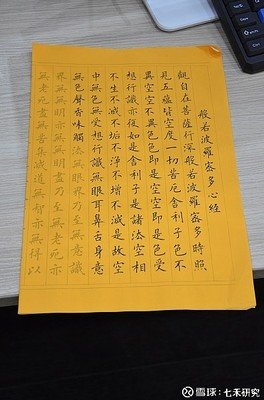 般若波羅蜜多心經
觀自在菩薩行深般若波羅蜜多時照
見五蘊皆空度一切苦厄舍利子色不
異空空不異色色即是空空即是色受
想行識亦復如是舍利子是諸法空相
不生不滅不垢不淨不增不減是故空
中無色無受想行識無眼耳鼻舌身意
無色聲香味觸法無眼界乃至無意識
界無無明亦無無明盡乃至無老死亦
無老死盡無苦集滅道無智亦無得以
雪球：七禾研究